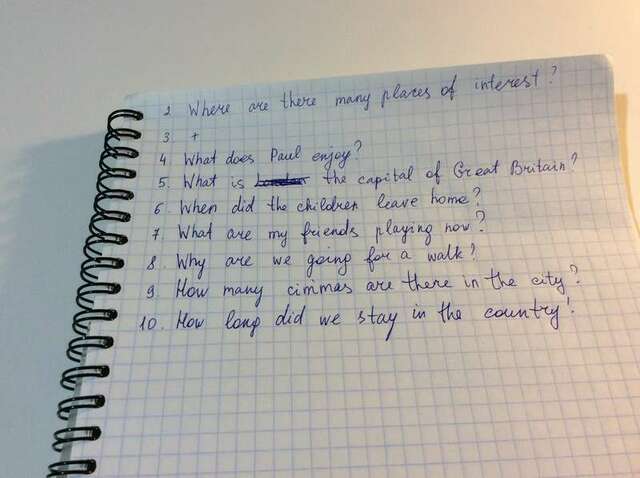 2 Where are there many places of interest?
3. +
4. What does Paul enjoy?
5. What is the capital of Great Britain?
6. When did the children leave home?
7. What are my friends playing now?
8. Why are we going for a walk?
9. How many cinmas are there in the city?
10. How long did we stay in the country?